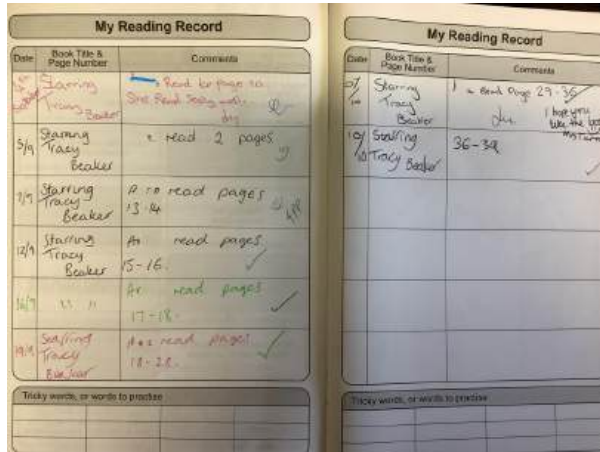 My Reading Record
Date Book Title & Page Number Comments
Starring Tracy Beaker
Read page 10
She Read really well
5/9 Starring Tracy Beaker
read 2 pages
9/9 Starring Tracy Beaker
read pages
13-14
12/9 Starring Tracy Beaker
read pages
15-16.
16/9 " "
read pages
17-18.
19/9 Starring Tracy
read pages
18-28.
Tricky words, or words to practise
My Reading Record
Date Book Title & Page Number Comments
Starring Tracy Beaker
Read Page 29-35
I hope you
like the
10/10 Starring Tracy Beaker
36-39
Tricky words, or words to practise